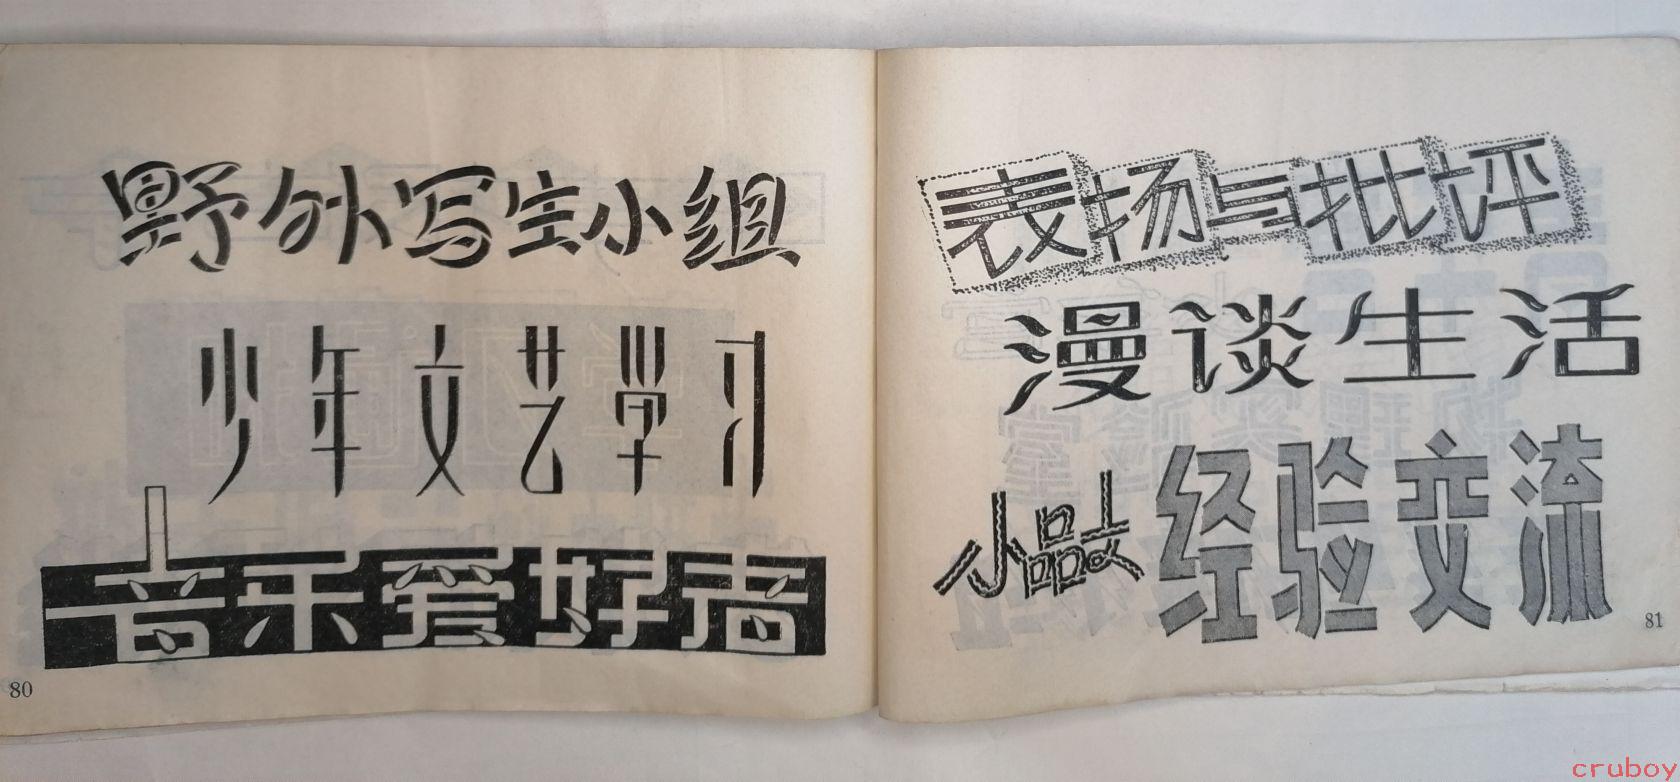 野外写生小组
少年文艺学习
音乐爱好者
80
表扬与批评
漫谈生活
小品文
经验交流
81
cruboy